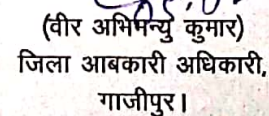 (वीर अभिमन्यु कुमार)
जिला आबकारी अधिकारी,
गाजीपुर।